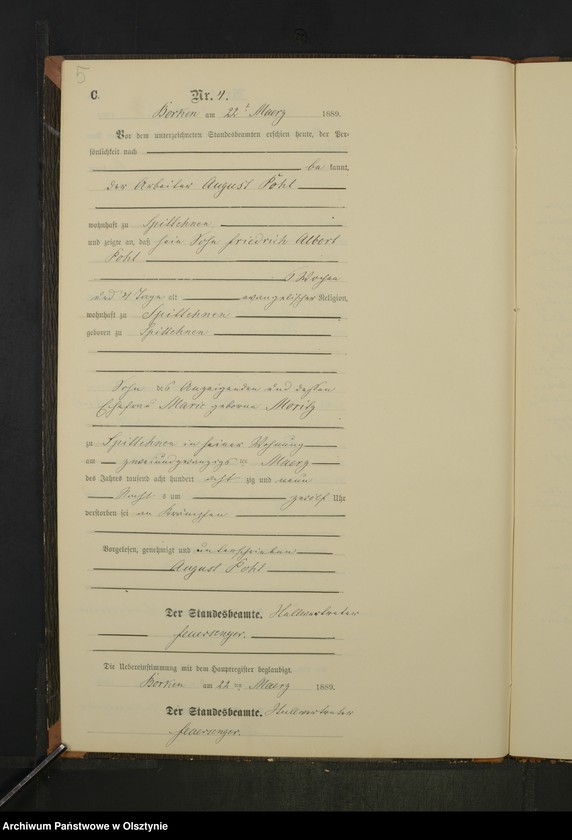 5
C.
Nr. 4.
Borken am 22ᵗ Maerz 1889.
Vor dem unterzeichneten Standesbeamten erschien heute, der Per-
sönlichkeit nach
be kannt,
der Arbeiter August Pohl
wohnhaft zu Spittehnen
und zeigte an, daß sein Sohn Friedrich Albert
Pohl
9 Wochen
und 4 Tage alt evangelischer Religion,
wohnhaft zu Spittehnen
geboren zu Spittehnen
Sohn des Anzeigenden und dessen
Ehefrau Marie geborne Moritz
zu Spittehnen in seiner Wohnung
am zweiundzwanzigsten Maerz
des Jahres tausend acht hundert acht zig und neun
Nachts um zwölf Uhr
verstorben sei an Krämpfen
Vorgelesen, genehmigt und unterschrieben
August Pohl
Der Standesbeamte. Stellvertreter
Feuersenger.
Die Uebereinstimmung mit dem Hauptregister beglaubigt.
Borken am 22ten Maerz 1889.
Der Standesbeamte. Stellvertreter
Feuersenger.
Archiwum Państwowe w Olsztynie